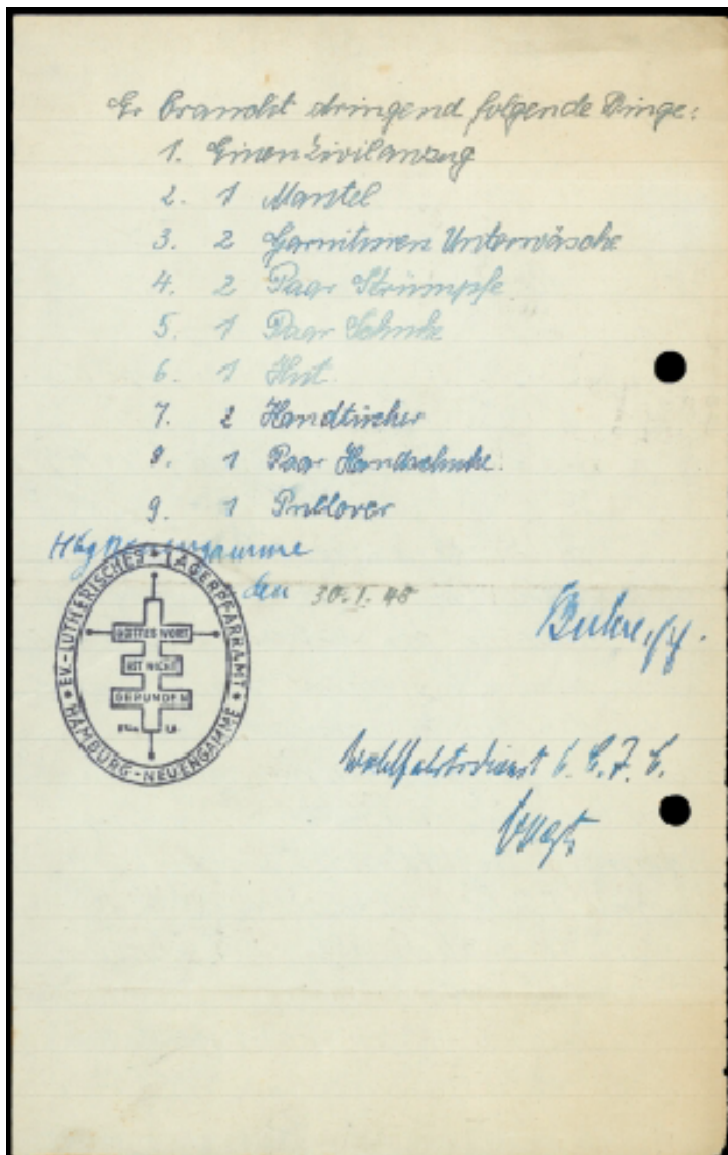 Er braucht dringend folgende Dinge:
1. Einen Zivilanzug
2. 1 Mantel
3. 2 Garnituren Unterwäsche
4. 2 Paar Strümpfe
5. 1 Paar Schuhe
6. 1 Hut
7. 2 Handtücher
8. 1 Paar Handschuhe.
9. 1 Pullover
Hbg Neuengamme
den 30.1.48
EV.-LUTHERISCHES LAGERPFARRAMT
HAMBURG-NEUENGAMME
GOTTES WORT
IST NICHT
GEBUNDEN
Wohlfahrtsdienst 6. C.I.C.